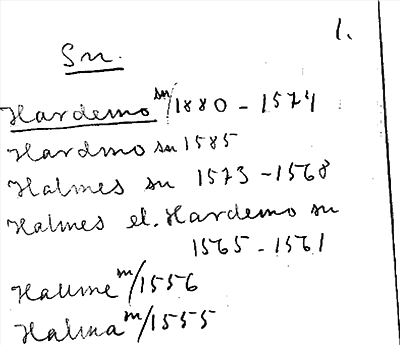 1.
Sn.
Hardemo sn/1880 - 1574
Hardmo sn 1585
Halmes sn 1573 - 1568
Halmes el. Hardemo sn
1565 - 1561
Hallme m/1556
Halma m/1555